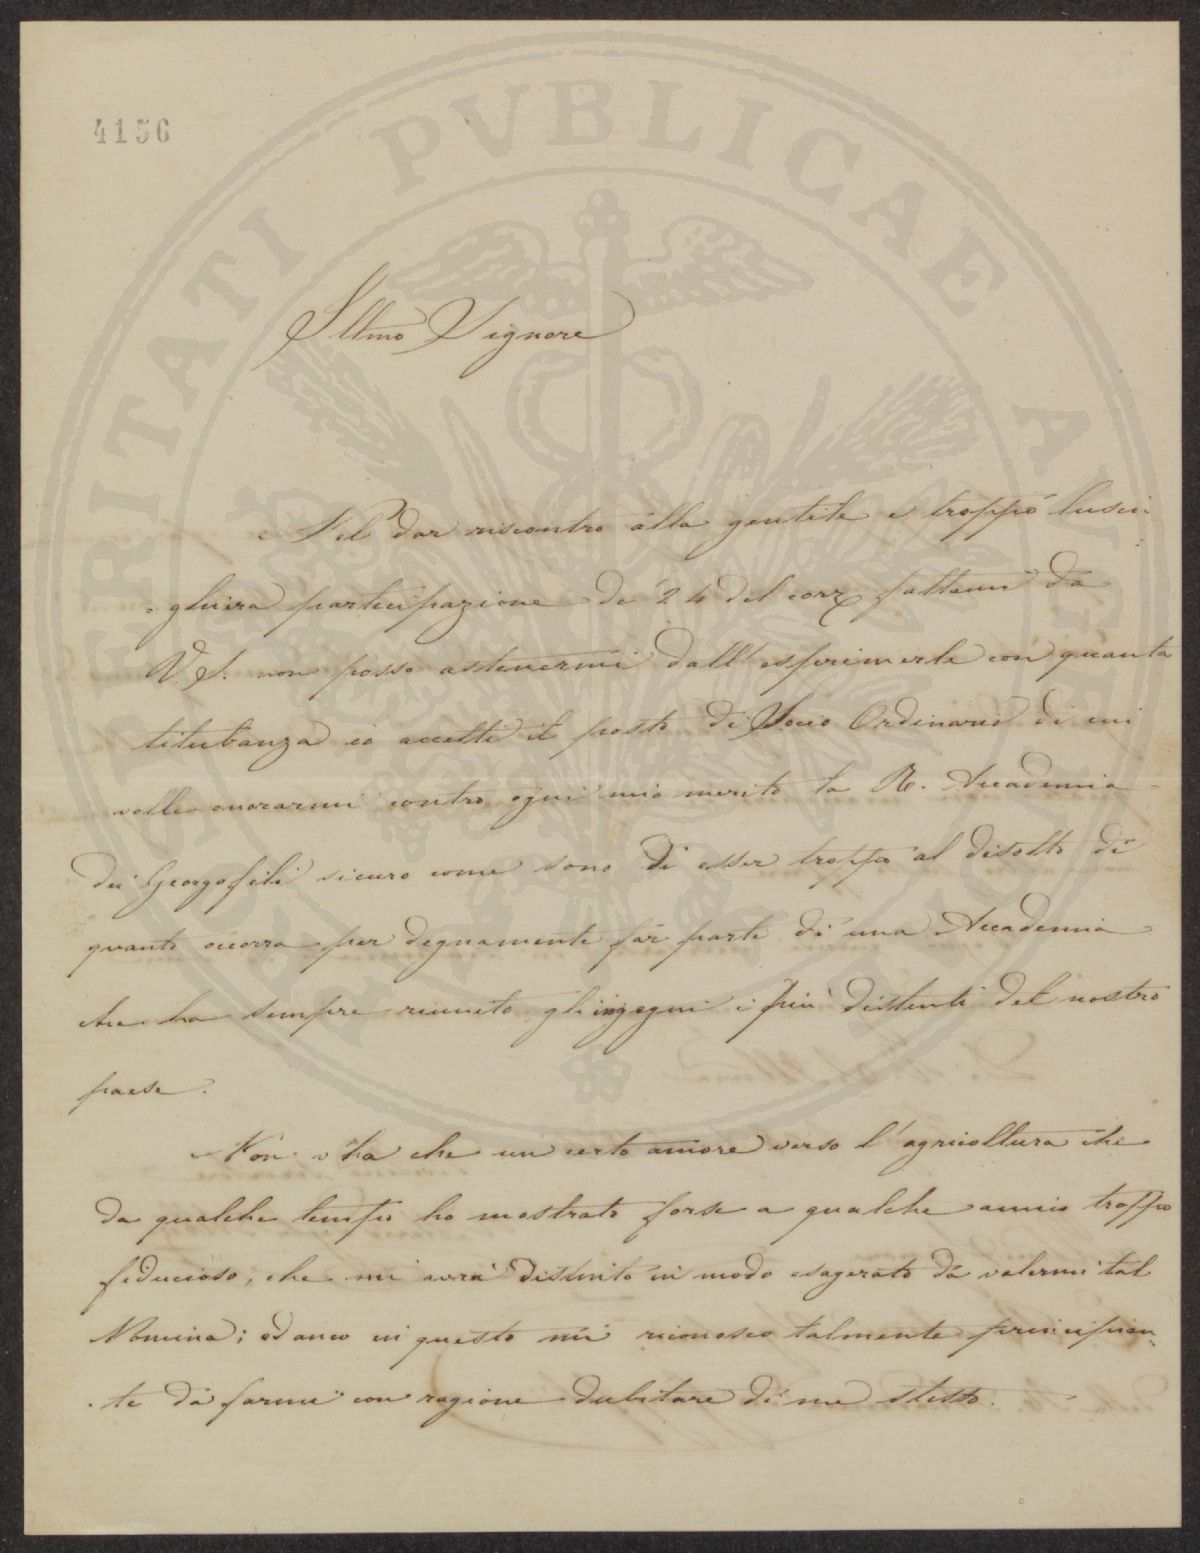 4156
PROSPERITATI PVBLICAE AVGENDAE
Illmo Signore
Nel dar riscontro alla gentile e troppo lusin-
ghiera partecipazione de' 24 del corr fattami da
V. S. non posso astenermi dall'esprimerle con quanta
titubanza io accetti il posto di Socio Ordinario di cui
volle onorarmi contro ogni mio merito la R. Accademia
dei Georgofili sicuro come sono di esser troppo al disotto di
quanto occorra per degnamente far parte di una Accademia
che ha sempre riunito gli ingegni i più distinti del nostro
paese.
Non v'ha che un certo amore verso l'agricoltura che
da qualche tempo ho mostrato forse a qualche amico troppo
fiducioso, che mi avrà distinto in modo esagerato da valermi tal
Nomina; ed anco in questo mi riconosco talmente principian-
te da farmi con ragione dubitare di me stesso.